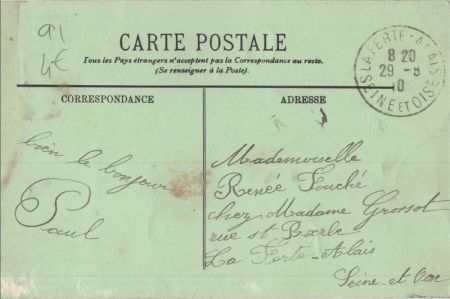 91
4€
CARTE POSTALE
Tous les Pays étrangers n'acceptent pas la Correspondance au recto.
(Se renseigner à la Poste).
LA FERTE-ALAIS
8 20
29 -5
10
SEINE ET OISE
CORRESPONDANCE
ADRESSE
bien le bonjour
Paul
Mademoiselle
Renée Fouché
chez Madame Grossot
rue st Barle
La Ferte-Alais
Seine-et Oise